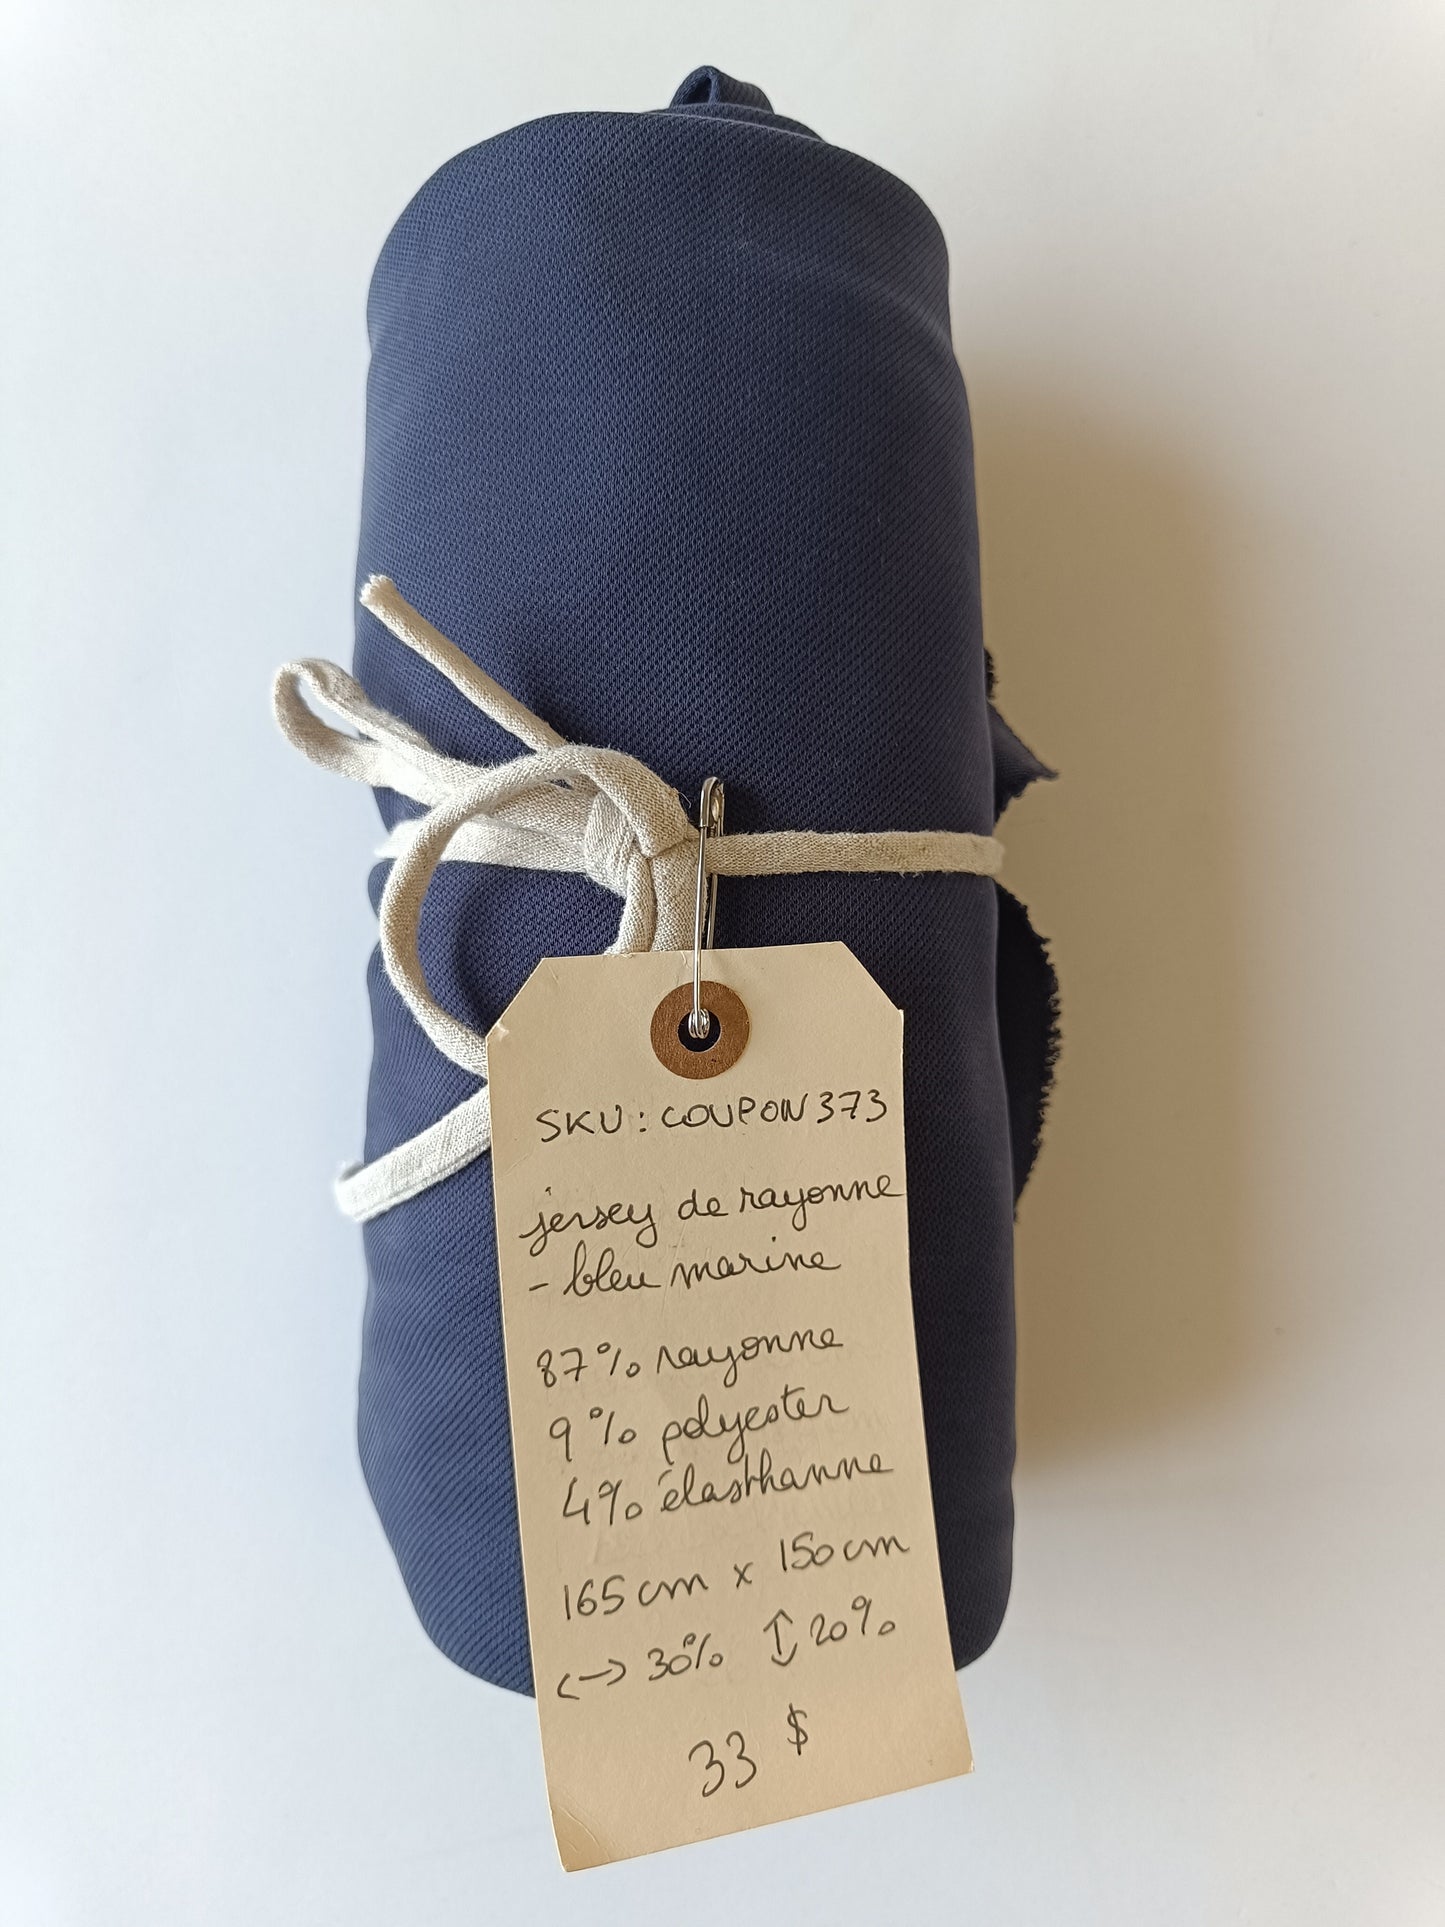 SKU: COUPON373
jersey de rayonne
- bleu marine
87% rayonne
9% polyester
4% élasthanne
165cm x 150cm
↔ 30% ↕ 20%
33 $